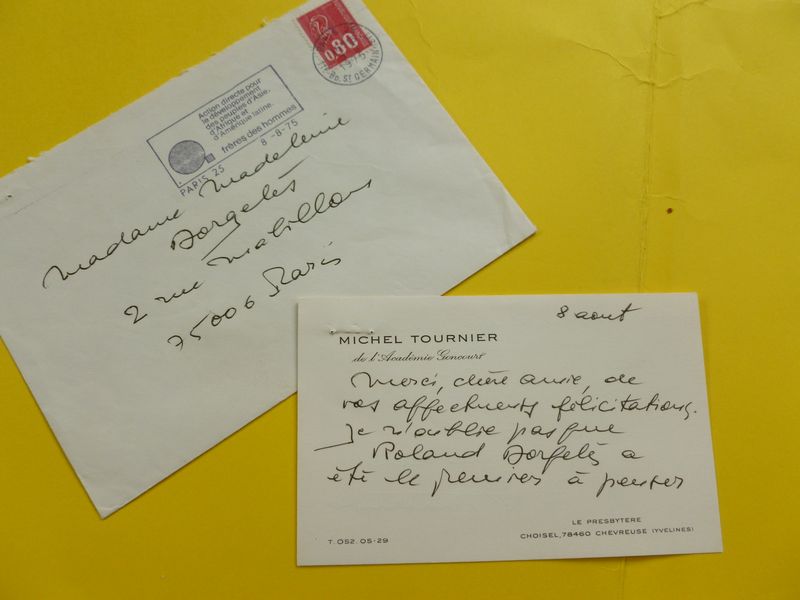 0,80
1975
Bd. St GERMAIN
Action directe pour
le développement
des peuples d'Asie,
d'Afrique et
d'Amérique latine.
frères des hommes
PARIS 25
8 -8-75
Madame Madeleine
Dorgelès
2 rue Mabillon
75006 Paris
8 aout
MICHEL TOURNIER
de l'Académie Goncourt
Merci, chère amie, de
vos affectueuses félicitations.
Je n'oublie pas que
Roland Dorgelès a
été le premier à penser
LE PRESBYTERE
CHOISEL, 78460 CHEVREUSE (YVELINES)
T. 052.05-29